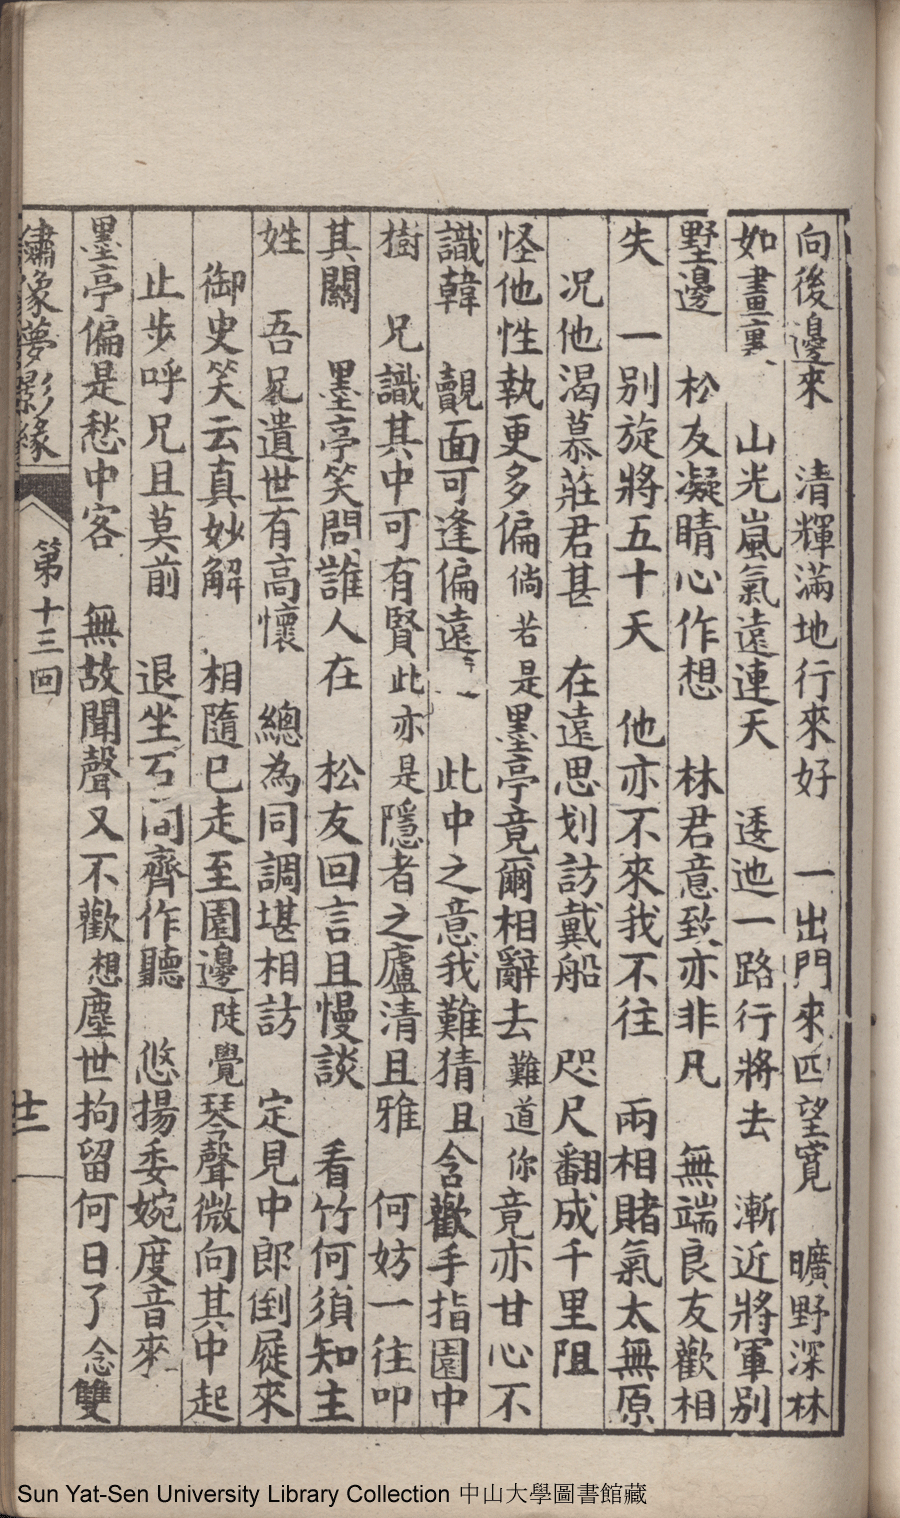 向後邊來　清輝滿地行來好　一出門來匹望寬　曠野深林
如畫裏　山光嵐氣遠連天　逶迆一路行將去　漸近將軍別
墅邊　松友凝睛心作想　林君意致亦非凡　無端良友歡相
失　一別旋將五十天　他亦不來我不往　兩相賭氣太無原
況他渴慕莊君甚　在遠思划訪戴船　咫尺翻成千里阻
怪他性執更多偏倘若是墨亭竟爾相辭去難道你竟亦甘心不
識韓　覿面可逢偏遠　此中之意我難猜且含歡手指園中
樹　兄識其中可有賢此亦是隱者之廬清且雅　何妨一往叩
其關　墨亭笑問誰人在　松友回言且慢談　看竹何須知主
姓　吾兄遺世有高懷　總為同調堪相訪　定見中郎倒屣來
御史笑云真妙解　相隨已走至園邊陡覺琴聲微向其中起
止步呼兄且莫前　退坐石間齊作聽　悠揚委婉度音來
墨亭偏是愁中客　無故聞聲又不歡想塵世拘留何日了念雙
繡像夢影緣　第十三回　廿二
Sun Yat-Sen University Library Collection 中山大學圖書館藏